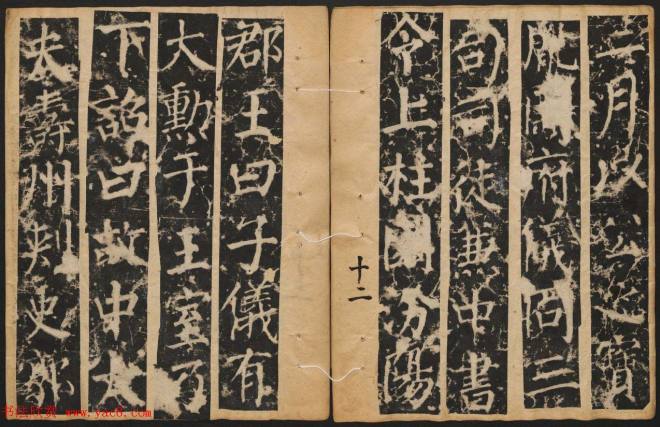 二月以公之寶
胤開府儀同三
司司徒兼中書
令上柱國汾陽
十二
郡王曰子儀有
大勳于王室乃
下詔曰故中大
夫壽州刺史郭
书法欣赏 www.yac8.com